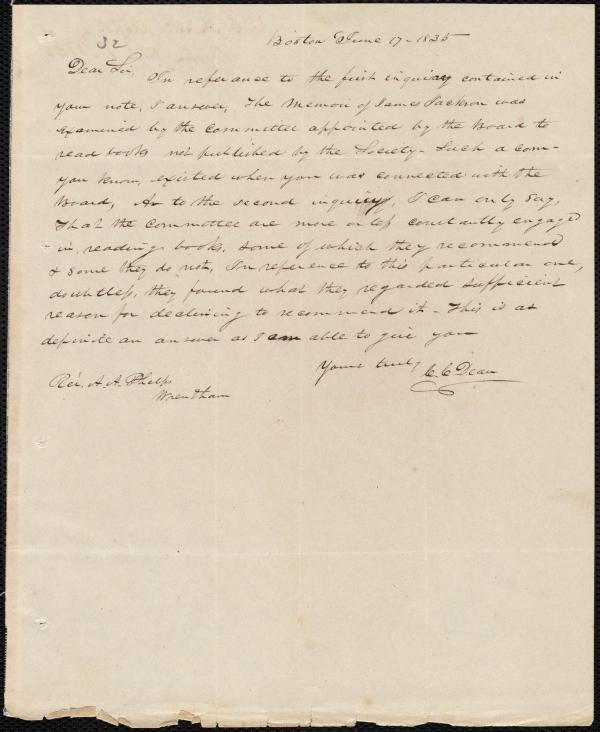 32
Boston June 17 - 1835
Dear Sir,
In referance to the first inquiry contained in
your note, I answer, The Memoir of James Jackson was
examined by the committee appointed by the Board to
read books not published by the Society - Such a com-
you know, existed when you was connected with the
Board, As to the second inquiry, I can only say,
That the committee are more or less constantly engaged
in reading books, some of which they recommend
& some they do not, In reference to this particular one,
doubtless, they found what they regarded sufficient
reason for declining to recommend it - This is as
definite an answer as I am able to give you
Yours truly
C. C. Dean
Rev. A. A. Phelps
Wrentham